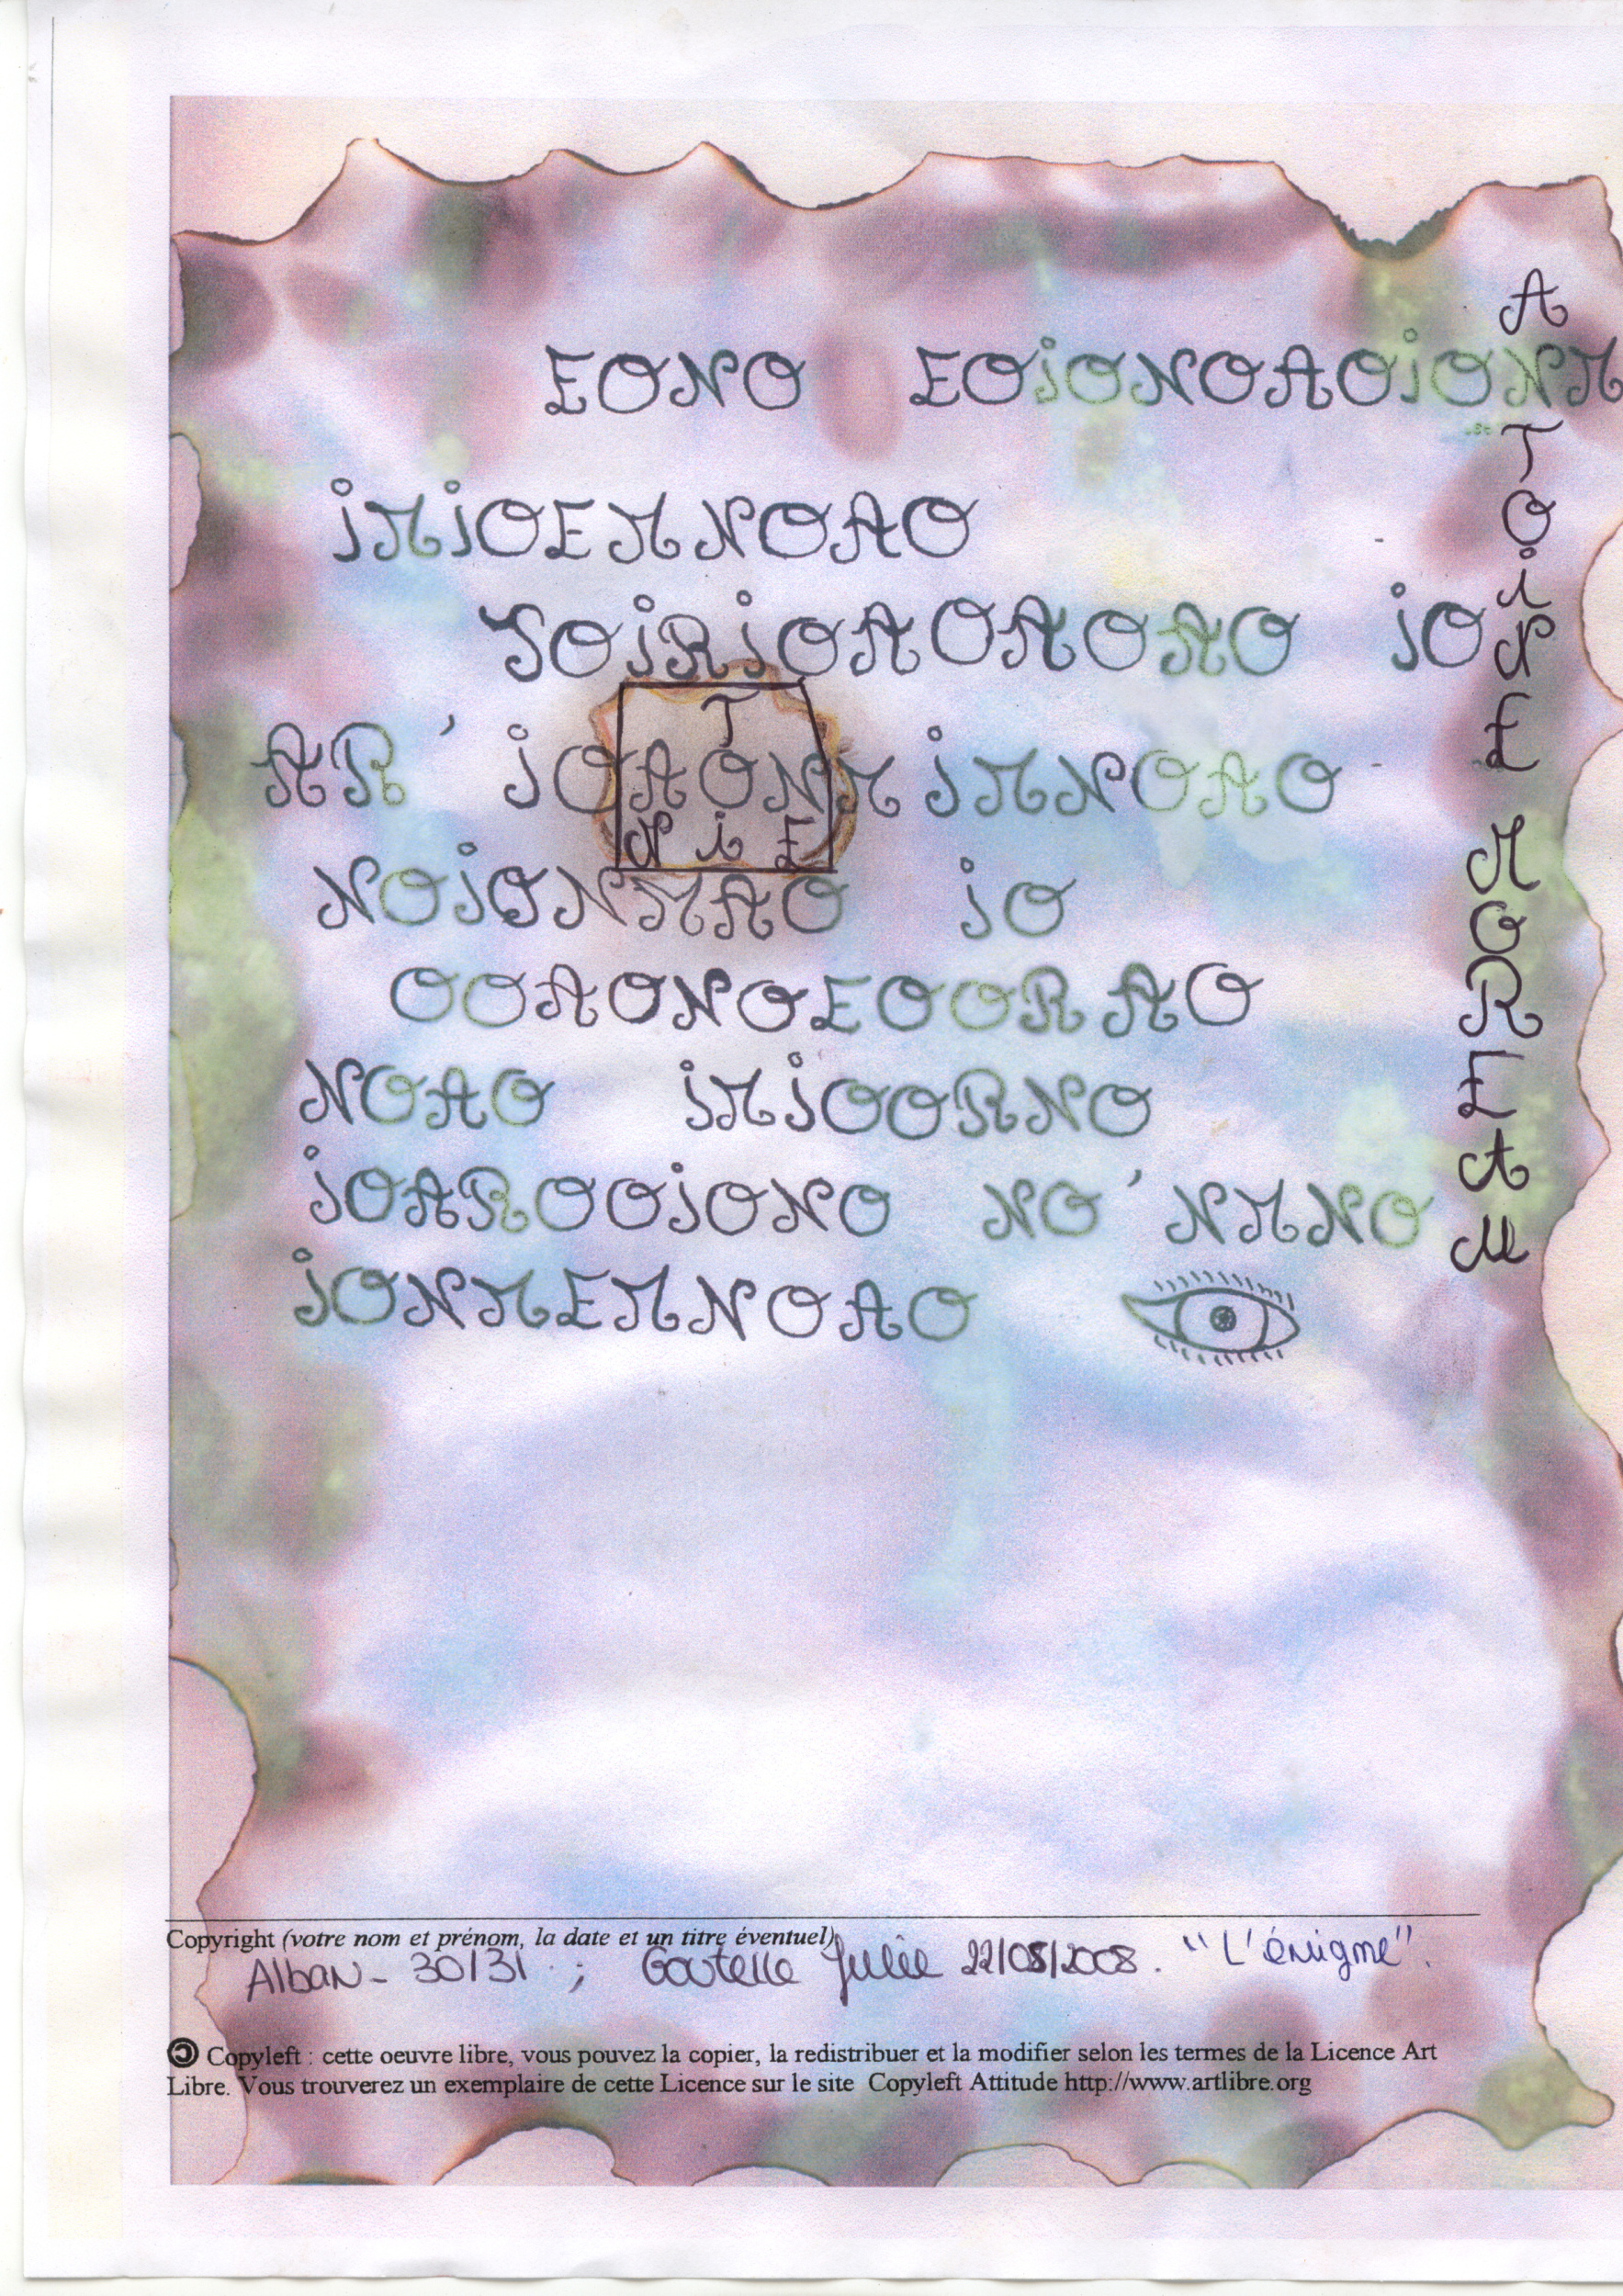 EONO EOiONOAOiONM
iMiOEMNOAO
SOiRiOAOAOAO iO
AR ' iOAONMiMNOAO
T
N i E
NOiONMAO iO
OOAONOEOORAO
NOAO iMiOORNO
iOAROOiONO NO'NMNO
iONMEMNOAO
A
T
O
i
N
E
M
O
R
E
t
u
Copyright (votre nom et prénom, la date et un titre éventuel)
Alban - 30/31 ; Goutelle Julie 22/08/2008. "L'énigme".
Copyleft : cette oeuvre libre, vous pouvez la copier, la redistribuer et la modifier selon les termes de la Licence Art
Libre. Vous trouverez un exemplaire de cette Licence sur le site Copyleft Attitude http://www.artlibre.org